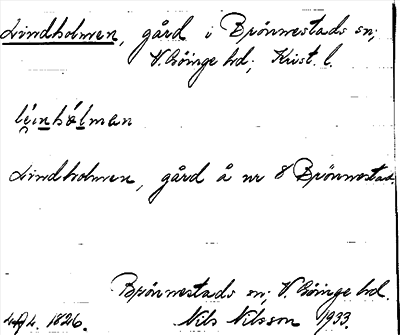 Lindholmen, gård i Brönnestads sn;
V. Göinge hd; Krist. l.
lįnhólman
Lindholmen, gård å nr 8 Brönnestad.
Brönnestads sn; V. Göinge hd.
1826. Nils Nilsson 1933.